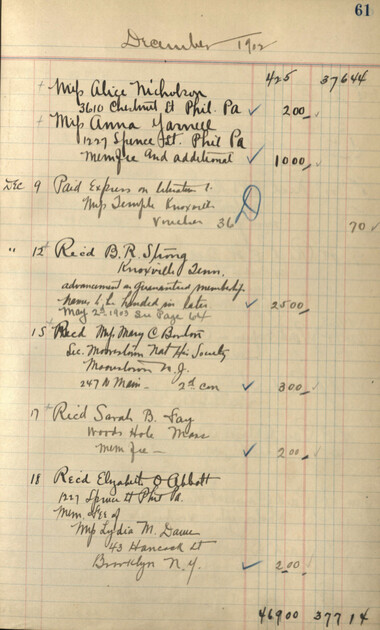 61
December 1902
4 25 376 44
+ Miss Alice Nicholson
3610 Chestnut St Phil. Pa ✓ 2 00
+ Miss Anna Yarnell
1227 Spruce St. Phil Pa
Mem fee and additional ✓ 10 00
Dec 9 Paid Express on Literature to
Miss Temple Knoxville
Voucher 36 70 ✓
" 12 Rec'd B.R. Strong
Knoxville Tenn.
advancement on Guaranteed membership
Names to be handed in later ✓ 25 00
May 2d 1903 See Page 64
15 Rec'd Miss Mary C
Sec. Moorestown Nat His Society
Moorestown N.J.
247 N Main - 2d con ✓ 3 00
17 Rec'd Sarah B. Fay
Woods Hole Mass
Mem fee - ✓ 2 00
18 Rec'd Elizabeth O Abbott
1227 Spruce St Phil Pa.
Mem. fee of
Miss Lydia M. Dame
43 Hancock St
Brooklyn N.Y. ✓ 2 00
469 00 377 14